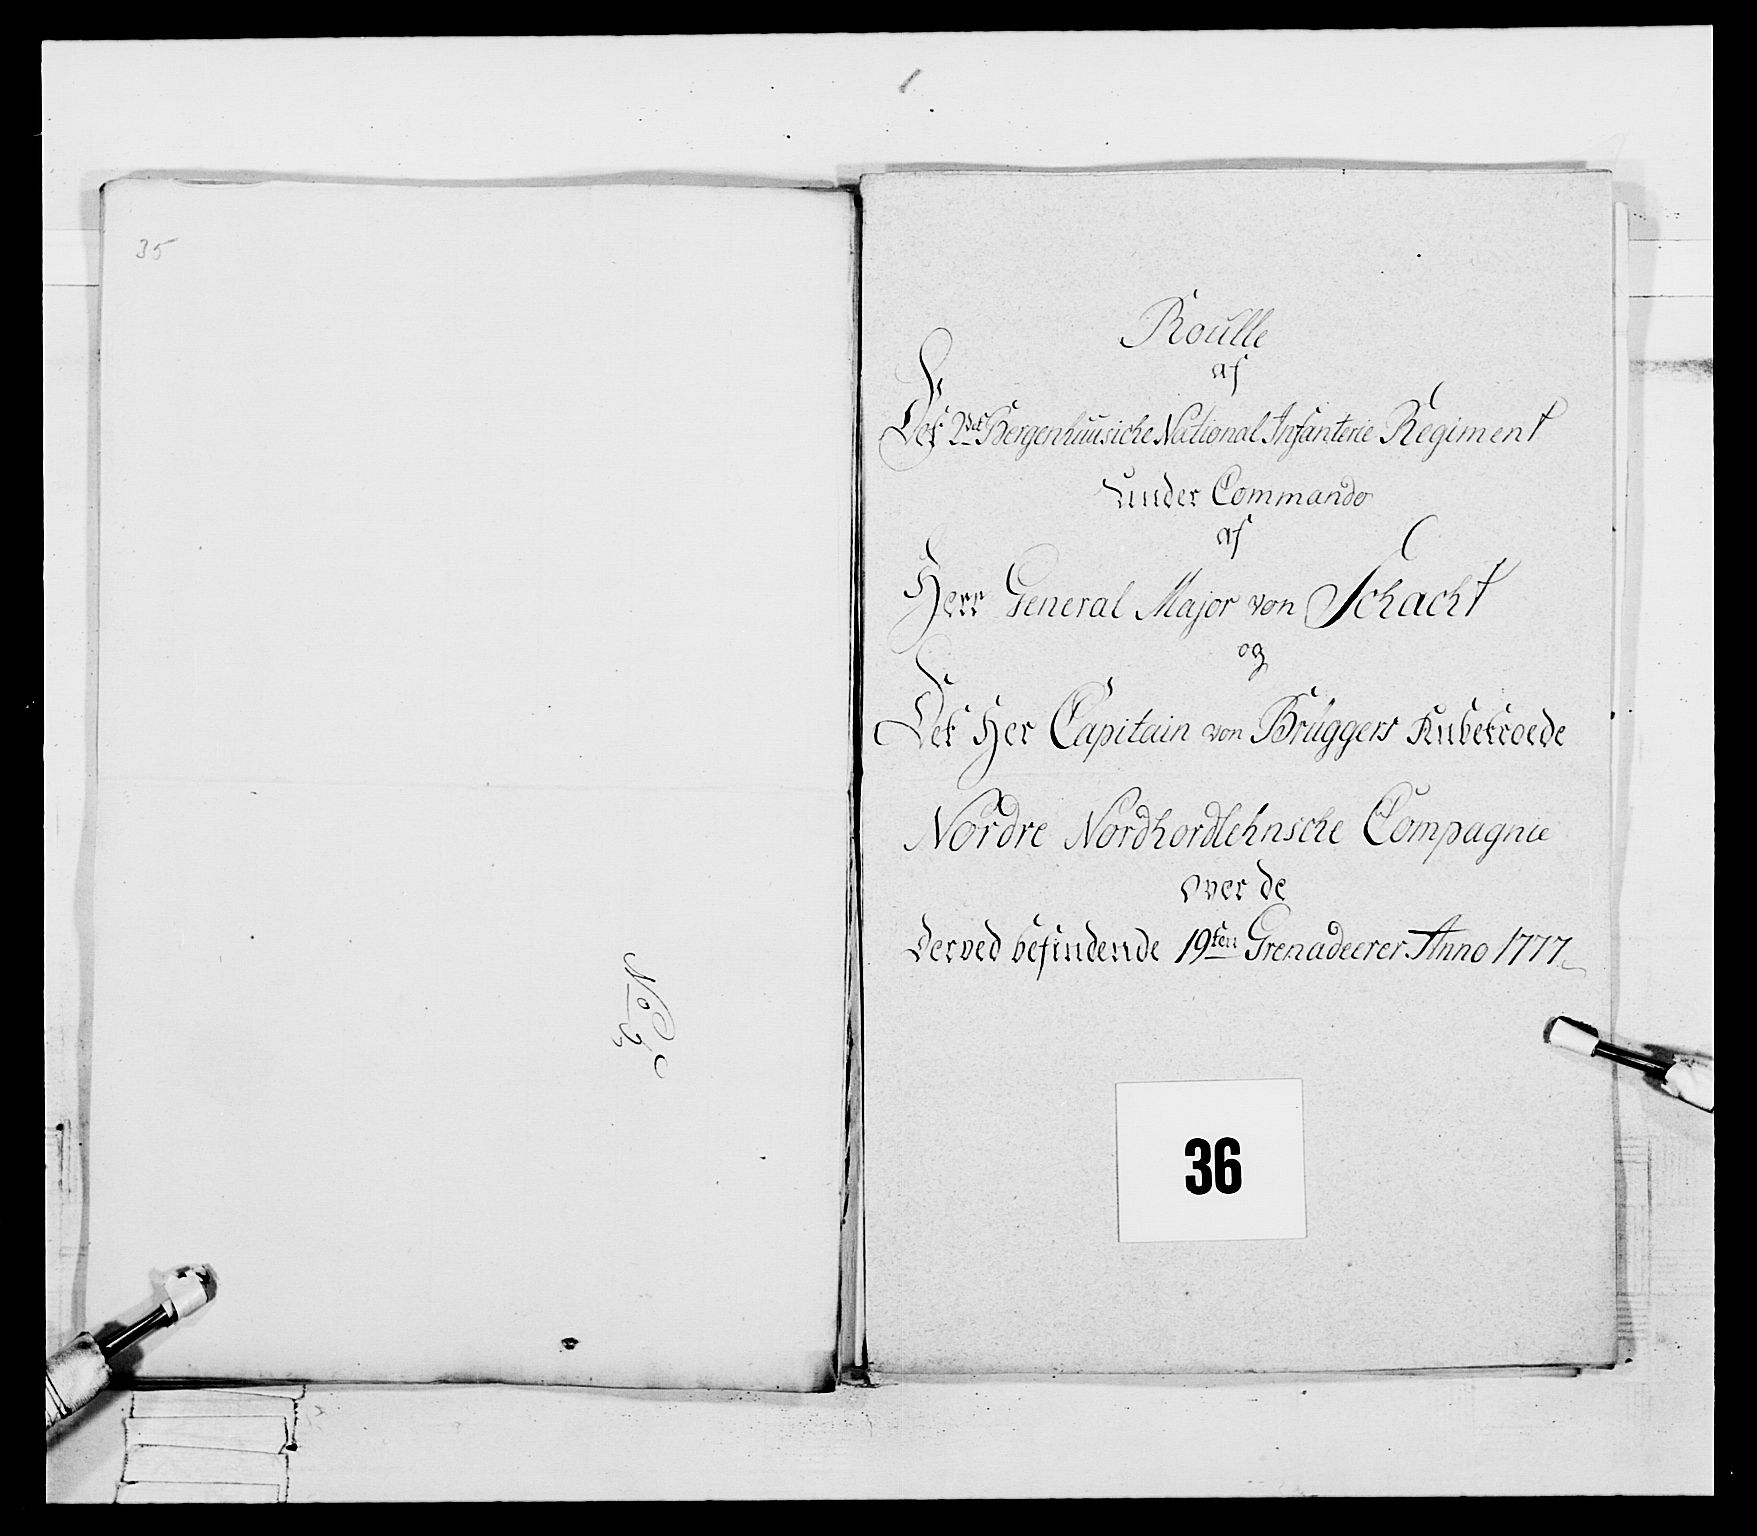 35
No 3
Roulle
af
Det 2det Bergenhuusiche National Infanterie Regiment
under Commando
af
Herr General Major von Schacht
og
Det Her Capitain von Brüggers Anbetroede
Nordre Nordhordlehnsche Compagnie
over de
derved befindende 19ten Grenadeerer Anno 1777
36